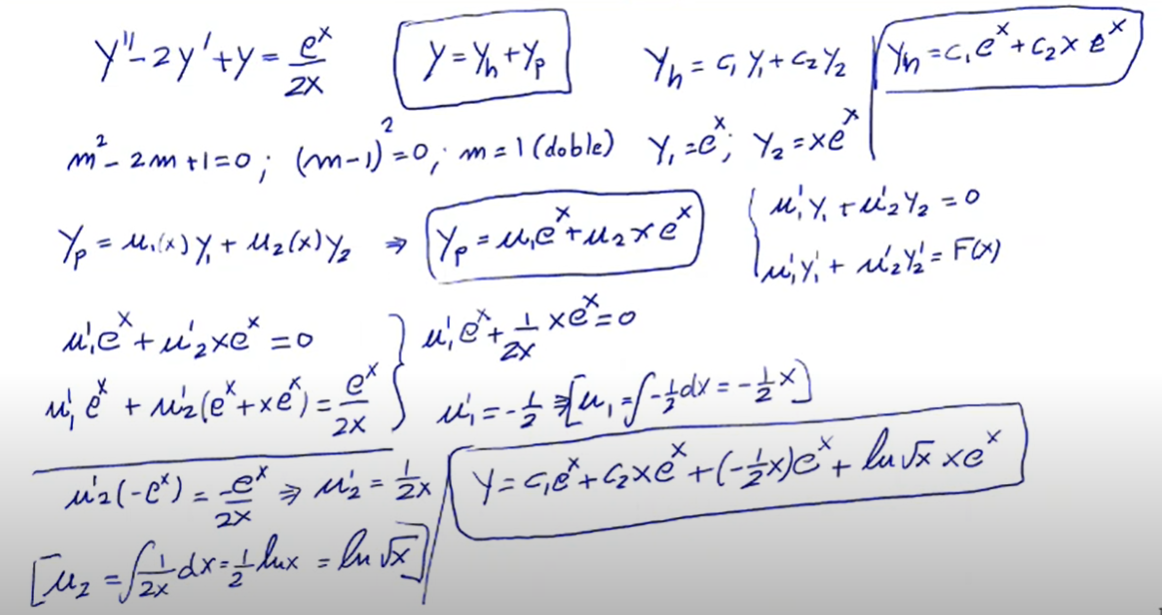 y'' - 2y' + y = e^x/2x   y = y_h + y_p   y_h = c_1 y_1 + c_2 y_2   y_h = c_1 e^x + c_2 x e^x
m^2 - 2m + 1 = 0 ; (m-1)^2 = 0 ; m = 1 (doble)   y_1 = e^x ; y_2 = x e^x
y_p = u_1(x) y_1 + u_2(x) y_2 ⇒ y_p = u_1 e^x + u_2 x e^x   { u_1' y_1 + u_2' y_2 = 0
u_1' y_1' + u_2' y_2' = F(x)
u_1' e^x + u_2' x e^x = 0   } u_1' e^x + 1/2x x e^x = 0
u_1' e^x + u_2' (e^x + x e^x) = e^x/2x   u_1' = -1/2 ⇒ [u_1 = ∫ -1/2 dx = -1/2 x]
u_2' (-e^x) = -e^x/2x ⇒ u_2' = 1/2x   y = c_1 e^x + c_2 x e^x + (-1/2 x) e^x + ln √x x e^x
[u_2 = ∫ 1/2x dx = 1/2 ln x = ln √x]